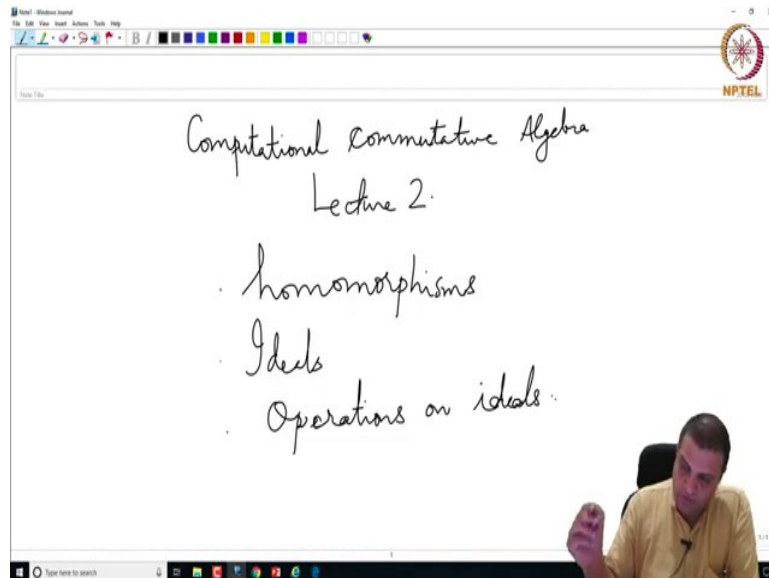 Note1 - Windows Journal
File Edit View Insert Actions Tools Help
B I
NPTEL
Note Title
Computational Commutative Algebra
Lecture 2.
· homomorphisms
· Ideals
· Operations on ideals.
1/1
1
Type here to search